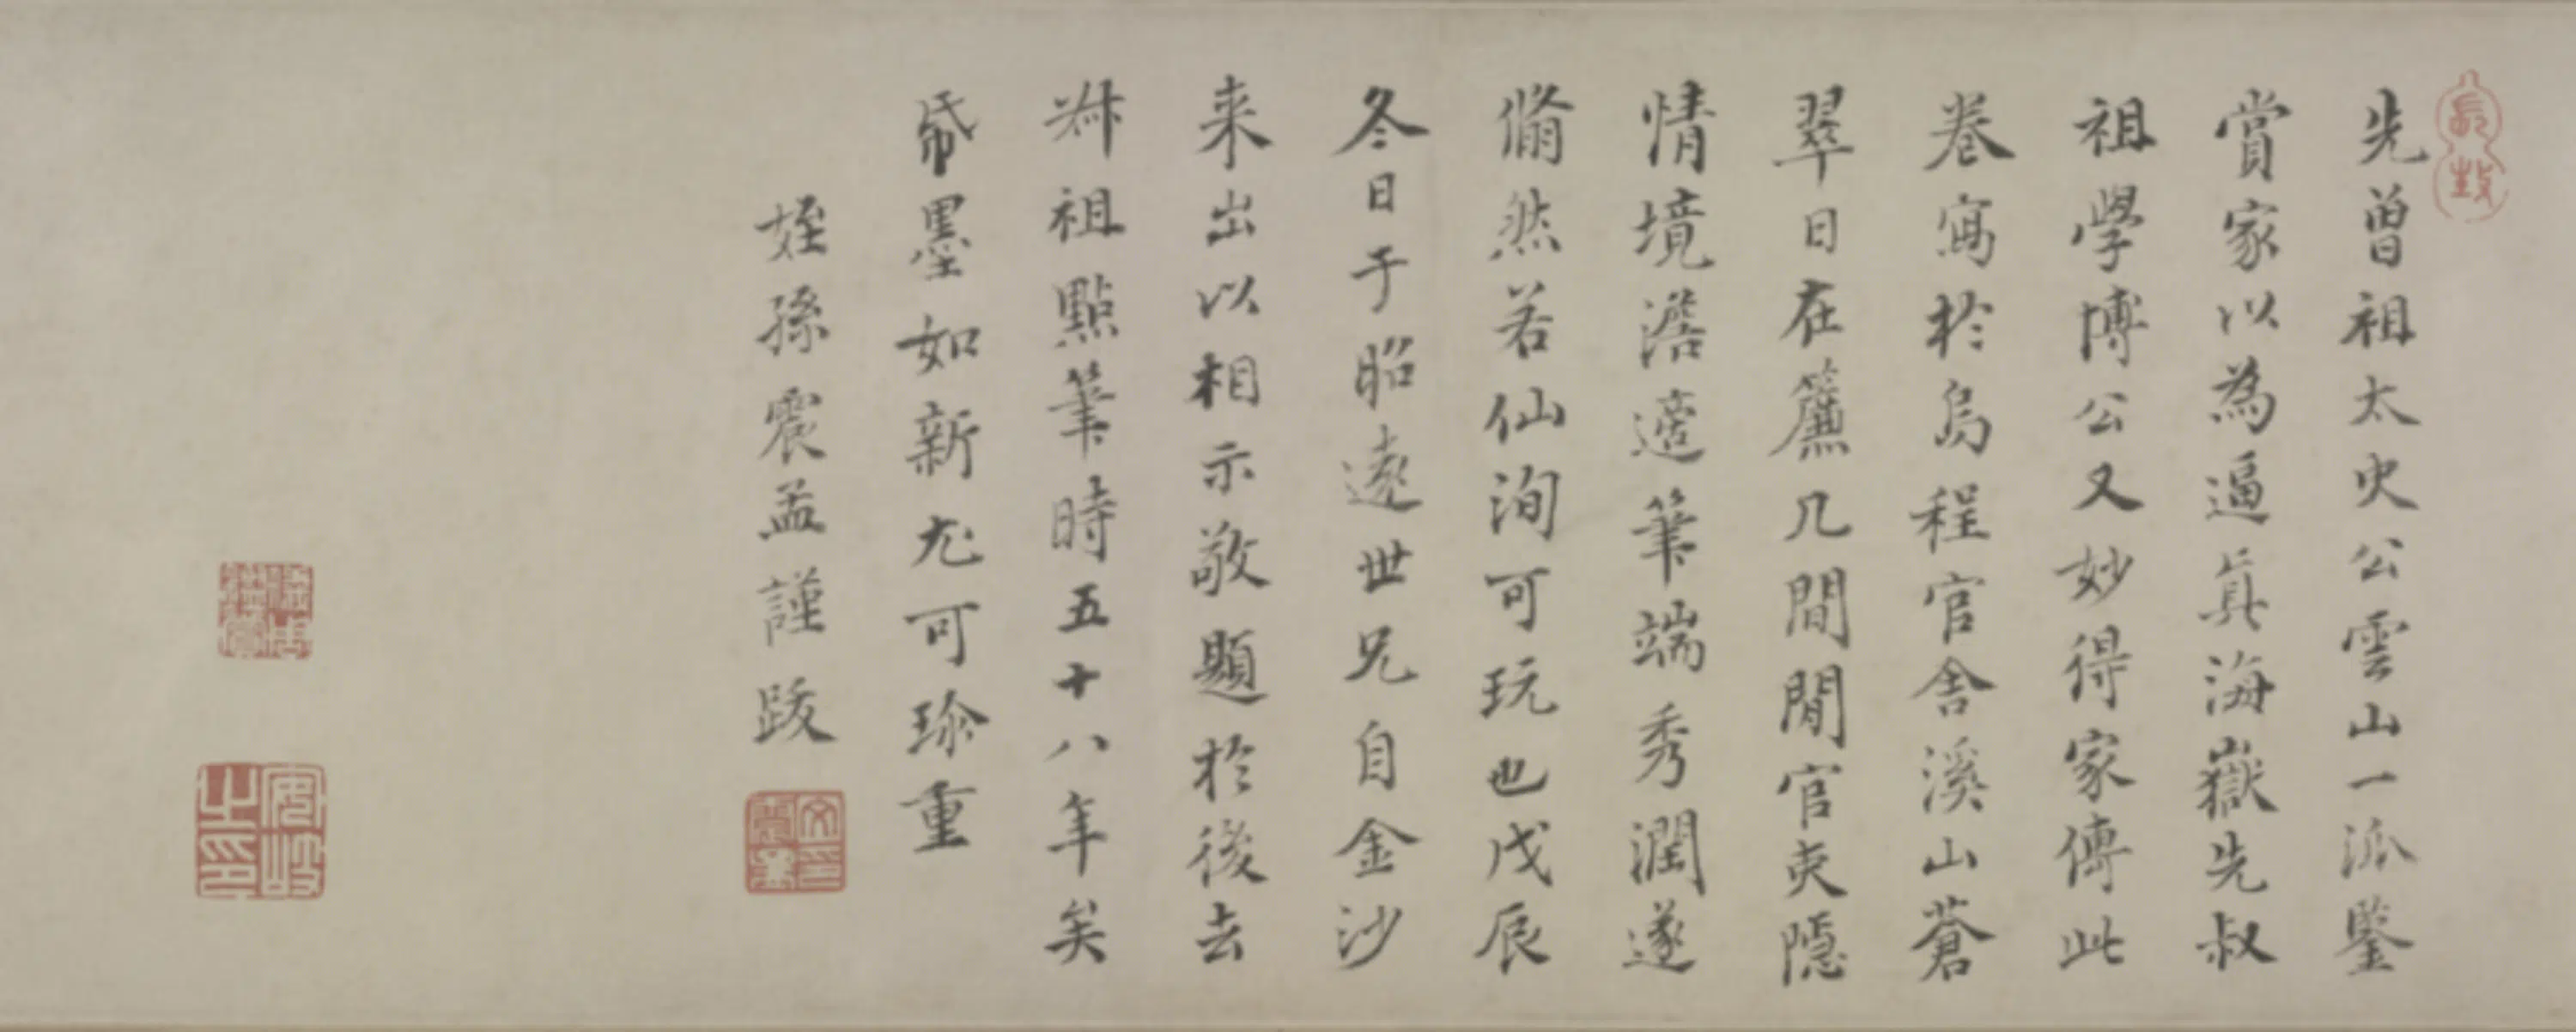 先曾祖太史公雲山一派鑒
賞家以為逼真海嶽先叔
祖學博公又妙得家傳此
卷寫於烏程官舍溪山蒼
翠日在簾几間閒官吏隱
情境澹適筆端秀潤遂
翛然若仙洵可玩也戊辰
冬日于昭遠世兄自金沙
来出以相示敬題於後去
叔祖點筆時五十八年矣
帋墨如新尤可珍重
姪孫震孟謹跋
安岐之印